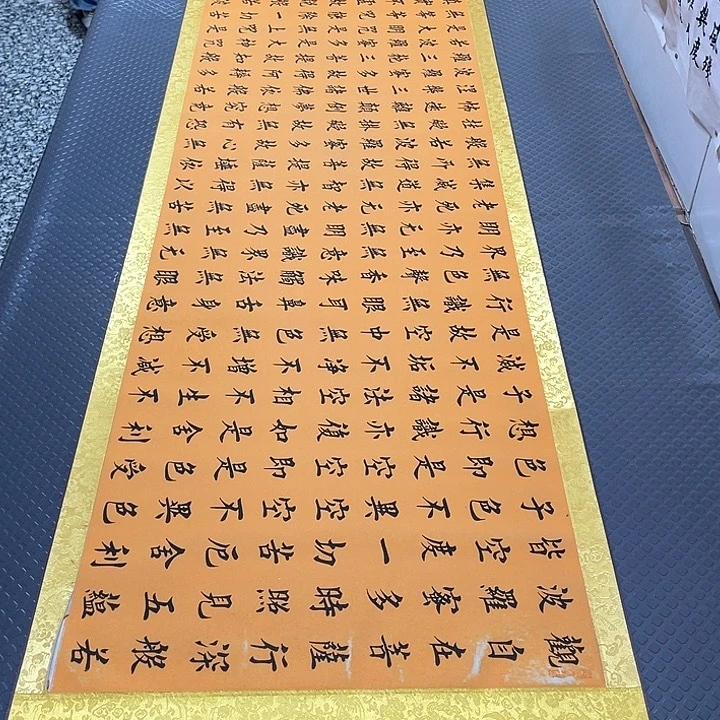 觀自在菩薩行深般若
波羅蜜多時照見五蘊
皆空度一切苦厄舍利
子色不異空空不異色
色即是空空即是色受
想行識亦復如是舍利
子是諸法空相不生不
滅不垢不净不增不減
是故空中無色無受想
行識無眼耳鼻舌身意
無色聲香味觸法無眼
界乃至無意識界無無
明亦無無明盡乃至無
老死亦無老死盡無苦
集滅道無智亦無得以
無所得故菩提薩埵依
般若波羅蜜多故心無
挂礙無掛礙故無有恐
怖遠離顛倒夢想究竟
涅槃三世諸佛依般若
波羅蜜多故得阿耨多
羅三藐三菩提故知般
若波羅蜜多是大神咒
是大明咒是無上咒是
無等等咒能除一切苦